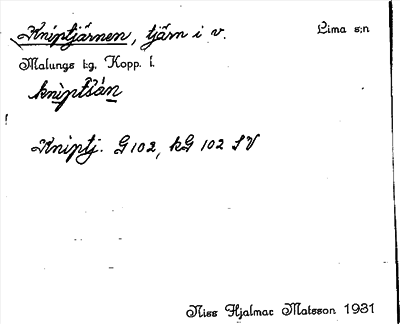 Kniptjärnen, tjärn i v. Lima s:n
Malungs t:g, Kopp. l.
kniptšán
Kniptj. G 102, kG 102 SV
Niss Hjalmar Matsson 1931